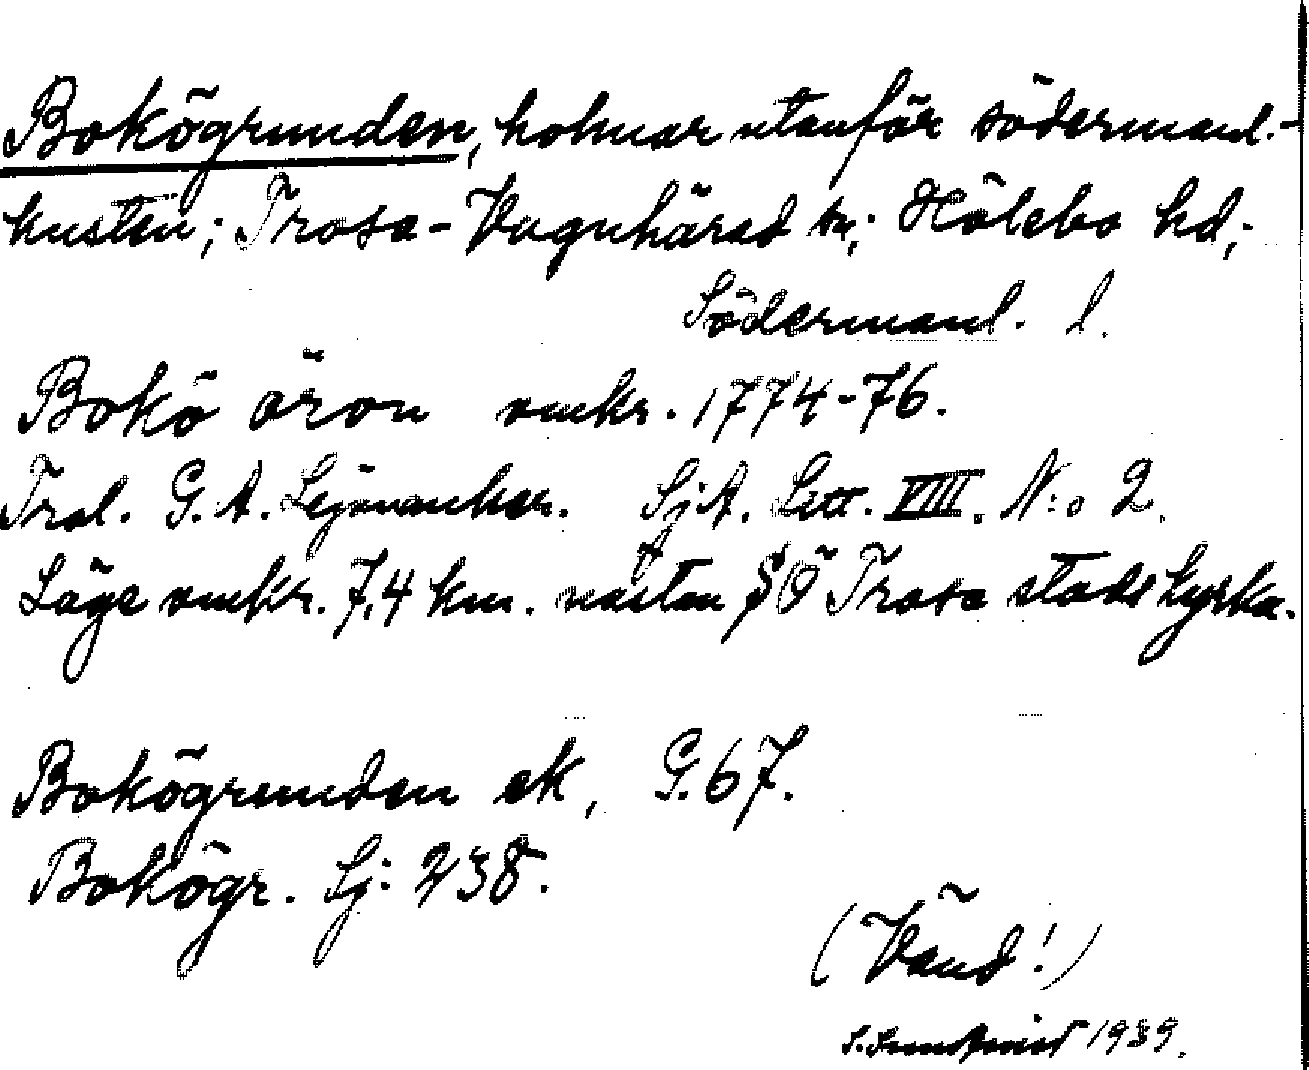 Bokögrunden, holmar utanför södermanl.-
kusten; Trosa-Vagnhärad sn; Hölebo hd;
Södermanl. l.
Bokö öron omkr. 1774-76.
Trol. G. A. Lejonancker. SjA. Litt. VIII. N:o 2.
Läge omkr. 7,4 km. nästan SÖ Trosa stads kyrka.
Bokögrunden ek, G. 67.
Bokögr. Sj: 238.
(Vänd!)
S. 1939.